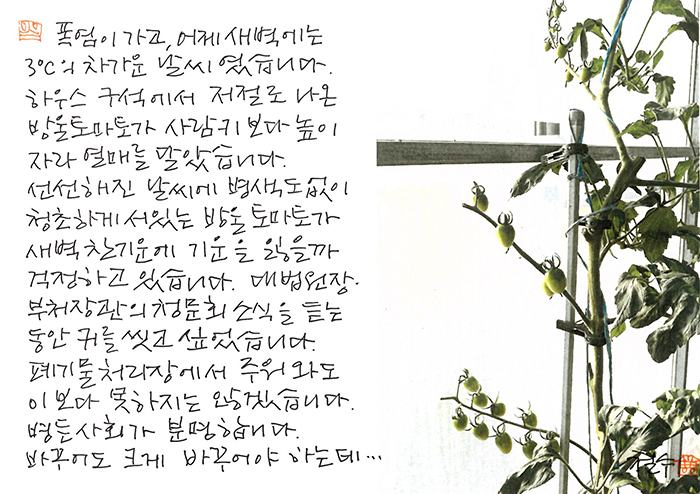 폭염이 가고, 어제 새벽에는
3℃의 차가운 날씨였습니다.
하우스 구석에서 저절로 나온
방울토마토가 사람키보다 높이
자라 열매를 맡았습니다.
선선해진 날씨에 병색도 없이
청초하게 서있는 방울토마토가
새벽 찬기운에 기운을 잃을까
걱정하고 있습니다. 대법원장·
부처장관의 청문회 소식을 듣는
동안 귀를 씻고 싶었습니다.
폐기물처리장에서 주워 와도
이보다 못하지는 않겠습니다.
병든 사회가 분명합니다.
바꾸어도 크게 바꾸어야 하는데…
철수